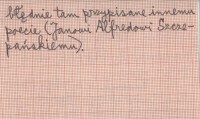 błędnie tam przypisane innemu
poecie (Janowi Alfredowi Szcze-
pańskiemu).